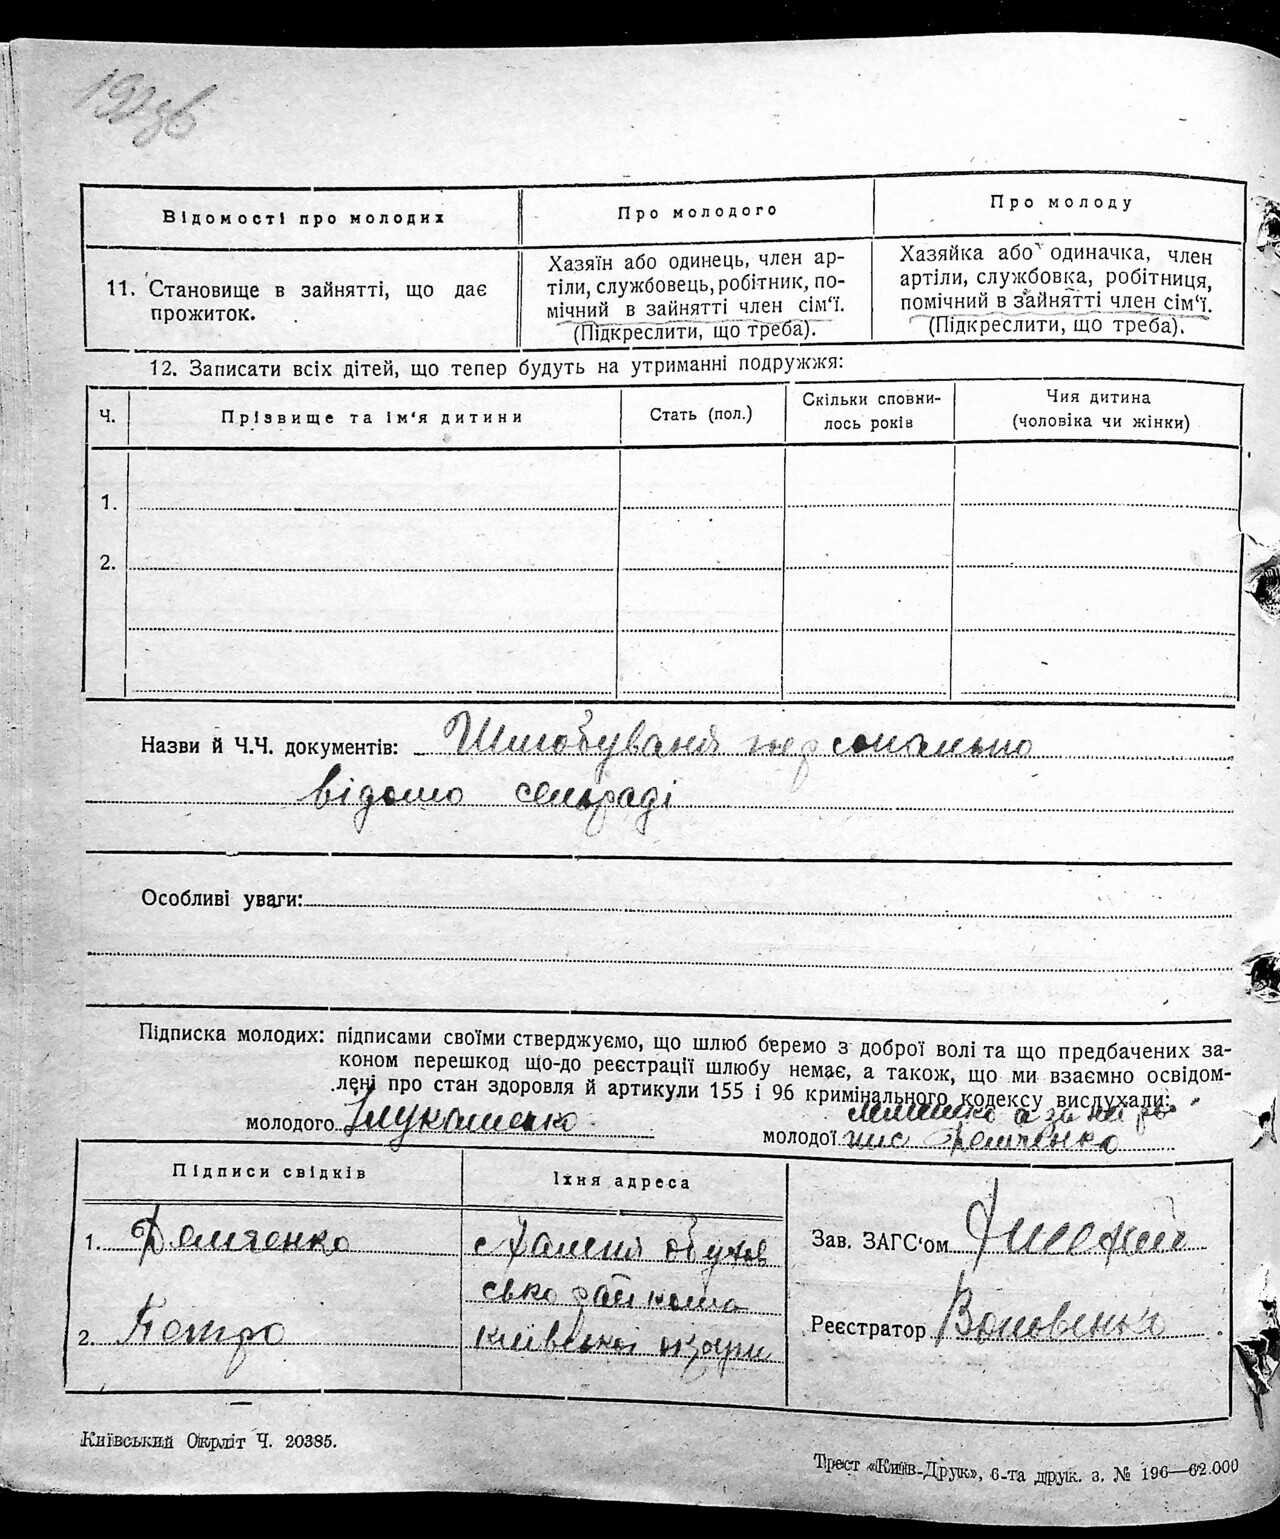 192 зв
Відомості про молодих
Про молодого
Про молоду
11. Становище в зайнятті, що дає
прожиток.
Хазяїн або одинець, член ар-
тіли, службовець, робітник, по-
мічний в зайнятті член сім'ї.
(Підкреслити, що треба).
Хазяйка або одиначка, член
артіли, службовка, робітниця,
помічний в зайнятті член сім'ї.
(Підкреслити, що треба).
12. Записати всіх дітей, що тепер будуть на утриманні подружжя:
Ч.
Прізвище та ім'я дитини
Стать (пол.)
Скільки сповни-
лось років
Чия дитина
(чоловіка чи жінки)
1.
2.
Назви й Ч.Ч. документів: персонально
відомо сельраді
Особливі уваги:
Підписка молодих: підписами своїми стверджуємо, що шлюб беремо з доброї волі та що предбачених за-
коном перешкод що-до реєстрації шлюбу немає, а також, що ми взаємно освідом-
лені про стан здоровля й артикули 155 і 96 кримінального кодексу вислухали:
молодого
молодої Демченко
Підписи свідків
Їхня адреса
1. Демченко
2. Петро
обухов
сько района
київської округи
Зав. ЗАГС'ом
Реєстратор
Київський Окрліт Ч. 20385.
Трест «Київ-Друк», 6-та друк. з. № 196—62.000